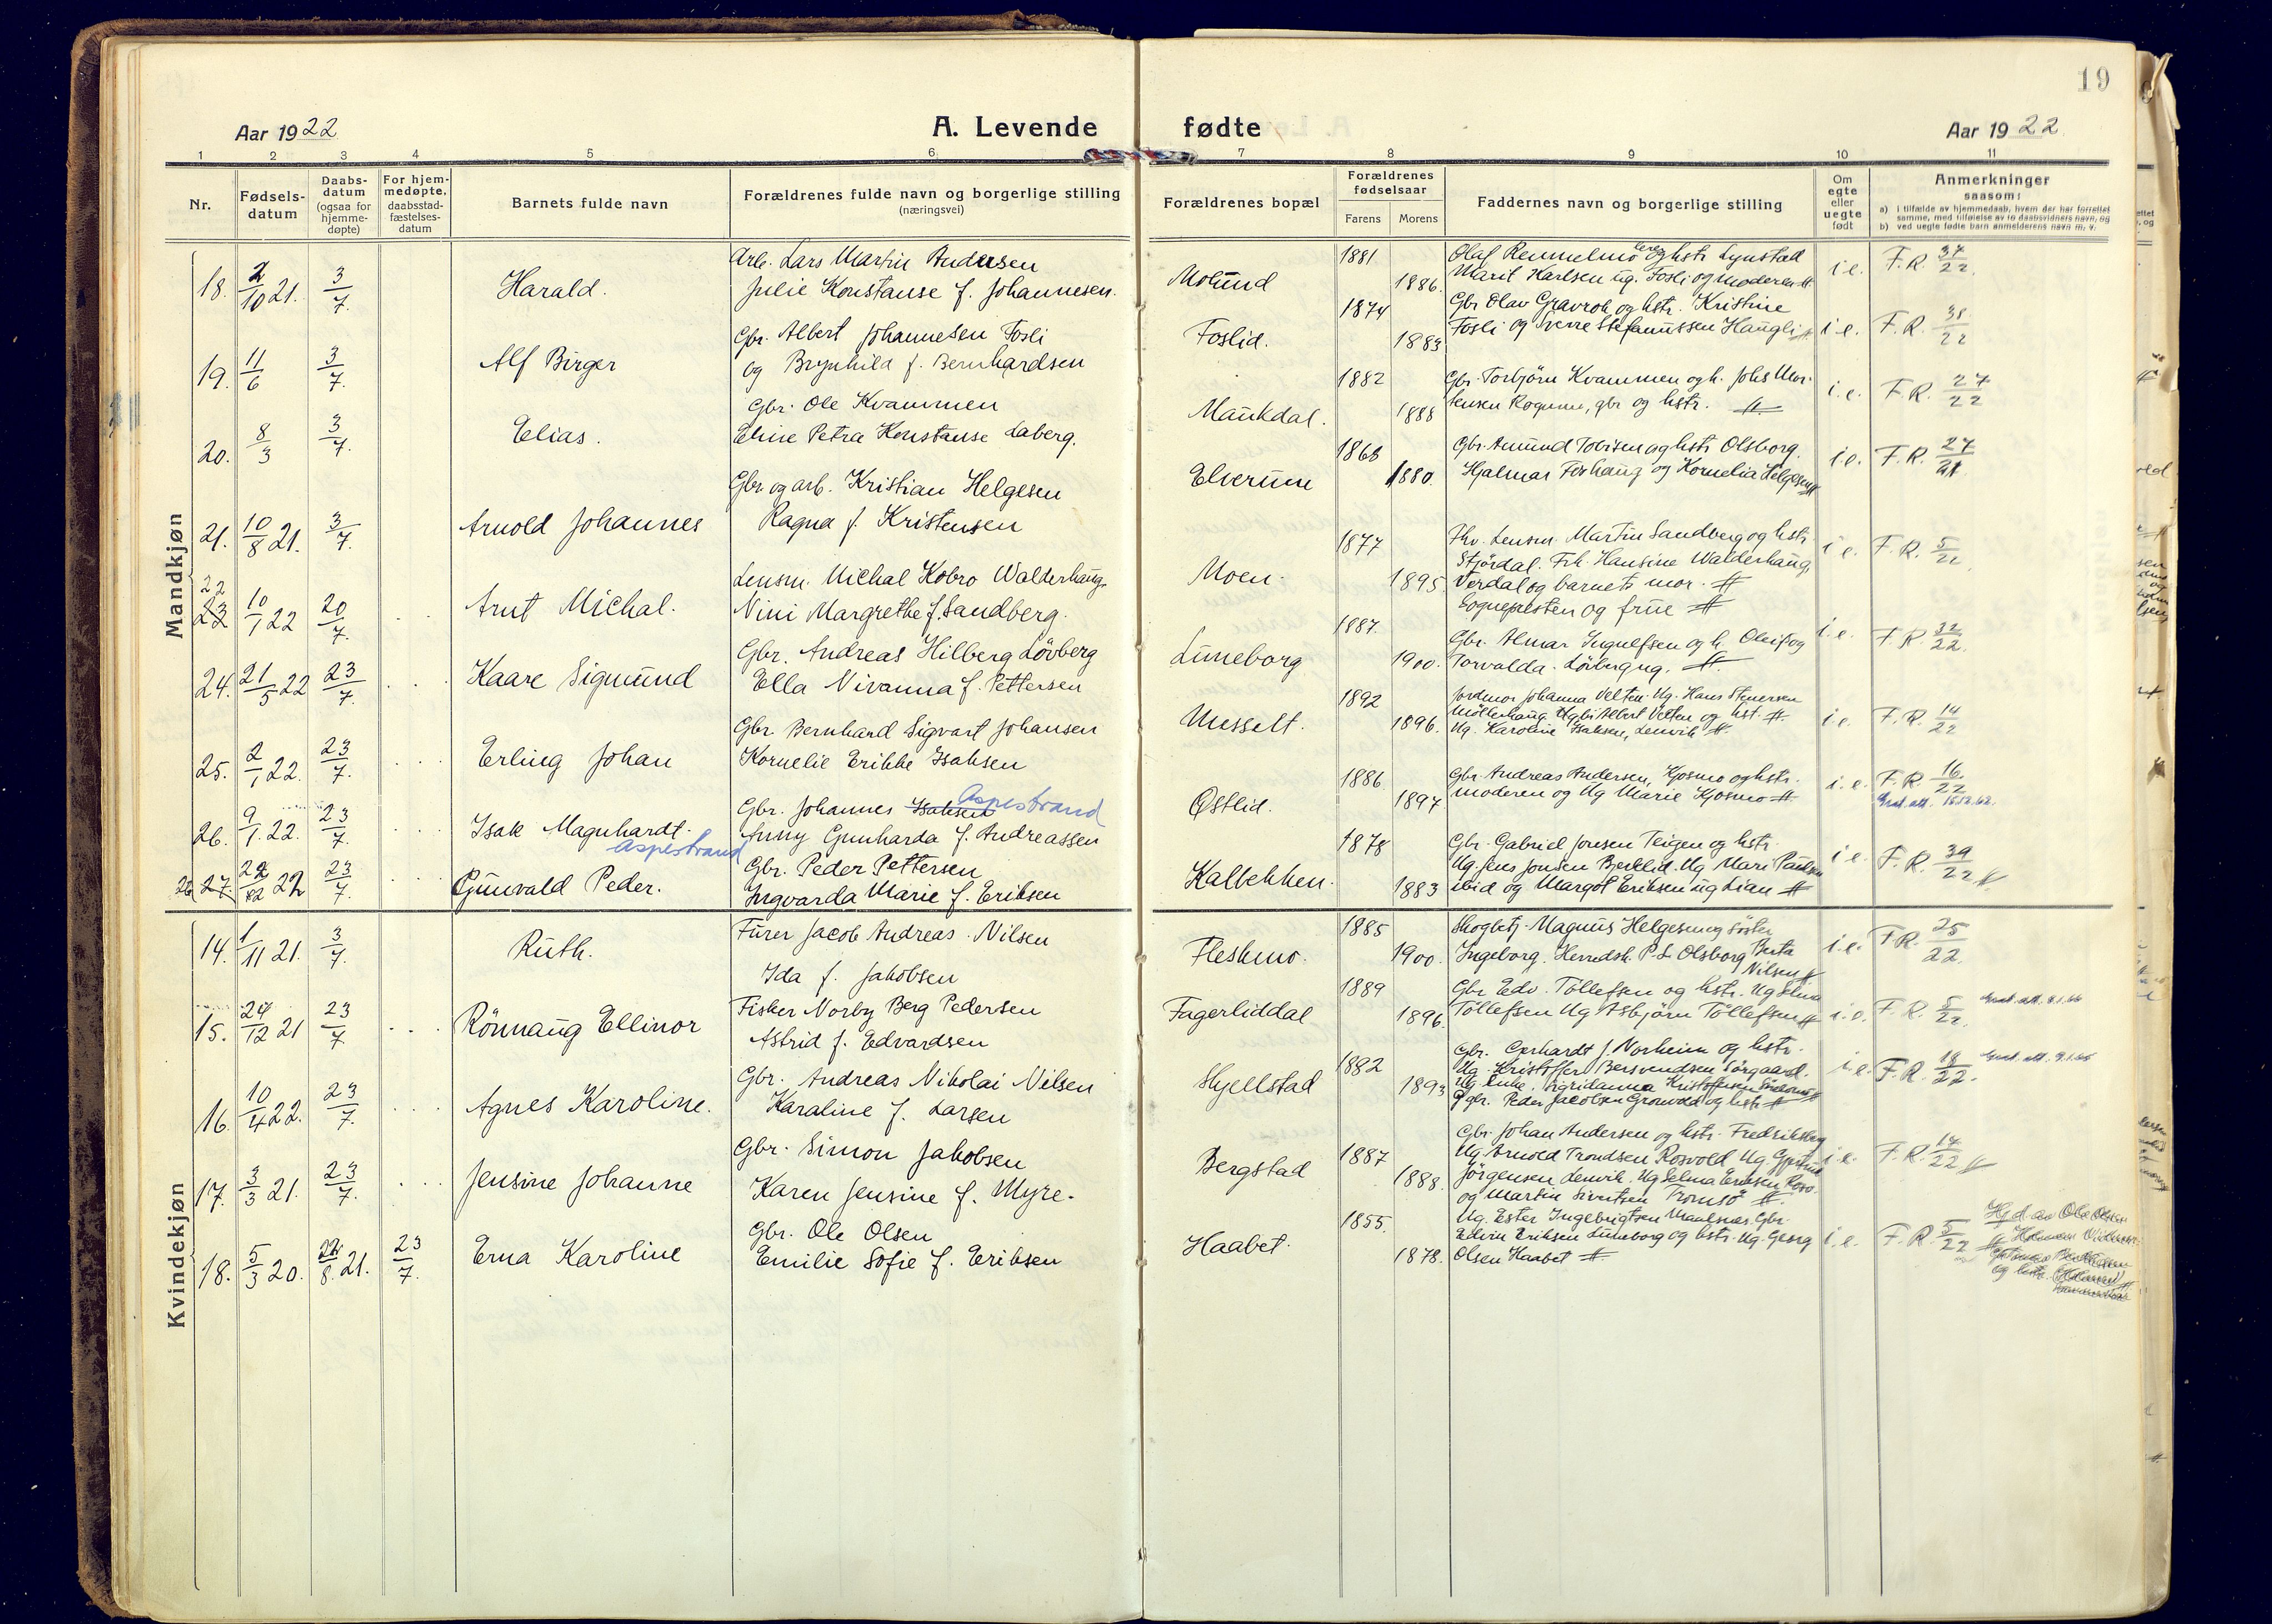 19
Aar 1922
A. Levende fødte
Aar 1922
1 2 3 4 5 6 7 8 9 10 11
Nr.
Fødsels-
datum
Daabs-
datum
(ogsaa for
hjemme-
døpte)
For hjem-
medøpte,
daabsstad-
fæstelses-
datum
Barnets fulde navn
Forældrenes fulde navn og borgerlige stilling
(næringsvei)
Forældrenes bopæl
Forældrenes
fødselsaar
Farens Morens
Faddernes navn og borgerlige stilling
Om
egte
eller
uegte
født
Anmerkninger
saasom:
a) i tilfælde av hjemmedaab, hvem der har forrettet
samme, med tilføielse av to daabsvidners navn, og
b) ved uegte fødte barn anmelderens navn m. v.
Mandkjøn
18. 2/10 21. 3/7. Harald.
Arb. Lars Martin Andersen
Julie Konstanse f. Johannesen.
Molund 1881 1886.
Marit Karlsen ug. Fosli og moderen
i.e. F.R. 37/22.
19. 11/6 3/7. Alf Birger
Gbr. Albert Johannesen Fosli
og Brynhild f. Bernhardsen
Foslid. 1874 1883
Gbr Olav Gravrok og hstr. Kristine
Fosli og Sverre Stefanussen Haugli
i.e. F.R. 38/22
20. 8/3 3/7. Elias.
Gbr. Ole Kvammen
Eline Petra Konstanse Laberg.
Maukdal. 1882 1888
Gbr. Torbjörn Kvammen og h. Johs Mor-
tensen Rognmo, gbr og hstr.
i.e. F.R. 27/22
21. 10/8 21. 3/7. Arnold Johannes
Gbr og arb. Kristian Helgesen
Ragna f. Kristensen
Elverum 1868 1880.
Gbr. Amund Tobisen og hstr Olsborg.
Hjalmar Forhaug og Kornelia Helgesen
i.e. F.R. 27/21
22 23 10/1 22 20/7. Arnt Michal.
Lensm. Michal Kobro Walderhaug.
Nini Margrethe f. Sandberg.
Moen. 1877 1895.
Fhv. Lensm. Martin Sandberg og hstr.
Stjördal. Frk. Hansine Walderhaug,
Verdal og barnets mor.
Sognepresten og frue
i.e. F.R. 5/22
24. 21/5 22 23/7. Kaare Sigmund
Gbr. Andreas Hilberg Lövberg
Ella Nivanna f. Pettersen
Luneborg 1887. 1900.
Gbr. Almar Ingulfsen og h. Oleif og
Torvalda Lövberg ug.
i.e. F.R. 32/22.
25. 2/1 22. 23/7. Erling Johan
Gbr. Bernhard Sigvart Johansen
Kornelie Erikke Isaksen
Musselt. 1892 1896.
Jordmor Johanna Velten. Ug. Hans Stenersen
Möllerhaug Gbr Albert Velten og hst.
Ug. Karoline Isaksen, Lenvik
i.e. F.R. 14/22
26. 9/1. 22. 23/7. Isak Magnhardt. Aspestrand
Gbr. Johannes Isaksen Aspestrand
Anny Gunharda f. Andreassen
Östlid. 1886 1897
Gbr Andreas Andersen, Kjosmo og hstr.
moderen og Ug Marie Kjosmo
i.e. F.R. 16/22
26 27. 22/12 22 23/7. Gunvald Peder.
Gbr. Peder Pettersen
Ingvarda Marie f. Eriksen
Kalbekken. 1878 1883
Gbr. Gabriel Jonsen Teigen og hstr
Ug Jens Jonsen Bjerklid. Ug Mari Paulsen
ibid og Margot Eriksen ug Lian
i.e. F.R. 39/22
Kvindekjøn
14. 1/11 21. 3/7. Ruth.
Furer Jacob Andreas Nilsen
Ida f. Jakobsen
Fleskmo. 1885 1900.
Skogbetj. Magnus Helgesen og söster
Ingeborg. Herredsk. P. L. Olsborg Berta
Nilsen
i.e. F.R. 25/22.
15. 24/12 21 23/7. Rönnaug Ellinor
Fisker Norby Berg Pedersen
Astrid f. Edvardsen
Fagerliddal 1889 1896.
Gbr Edv. Tollefsen og hstr. Ug Elina
Tollefsen Ug Asbjörn Tollefsen
i.e. F.R. 5/22.
16. 10/4 22. 23/7. Agnes Karoline.
Gbr. Andreas Nikolai Nilsen
Karaline f. Larsen
Skjellstad 1892 1893
Gbr. Gerhardt J. Norheim og hstr.
Ug. Kristoffer Bersvendsen Sörgaard.
gbr. Peder Jacobsen Gronvold og hstr
i.e. F.R. 18/22.
17. 3/3 21. 23/7. Jensine Johanne
Gbr. Simon Jakobsen
Karen Jensine f. Myre.
Bergstad 1887 1888.
Gbr Johan Andersen og hstr. Fredriksberg
Ug Arnold Trondsen Rosvold Ug
Jörgensen Lenvik. Ug Selma Eriksen
og Martin Sivertsen Tromsö
i.e. F.R. 17/22
18. 5/3 20. 21/8. 21. 23/7. Erna Karoline
Gbr. Ole Olsen
Emilie Sofie f. Eriksen
Haabet. 1855. 1878.
Ug. Ester Ingebrigtsen Maalsnes. Gbr.
Edvin Eriksen Luneborg og hstr. Ug. Georg
Olsen Haabet
i.e. F.R. 5/22
Hj.d. av Ole Olsen
og hstr.